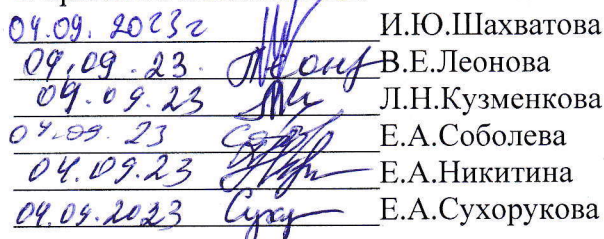 04.09.2023г И.Ю.Шахватова
04.09.23. Леон В.Е.Леонова
04.09.23 Л.Н.Кузменкова
04.09.23 Е.А.Соболева
04.09.23 Е.А.Никитина
04.09.2023 Сух Е.А.Сухорукова